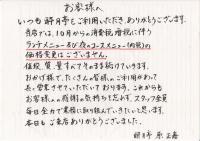 お客様へ
いつも 時子亭をご利用いただき、ありがとうございます。
当店では、10月からの消費税増税に伴う
ランチメニュー及び夜のコースメニュー(肉類)の
価格変更はございません。
値段、質、量すべてそのまま続けていきます。
おかげ様で、たくさんの皆様のご利用があって
長く営業させていただいております。これからも
お客様への感謝の気持ちを忘れず、スタッフ全員
毎日全力で業務に取り組んでいきたいと思います。
本日もご来店ありがとうございました。